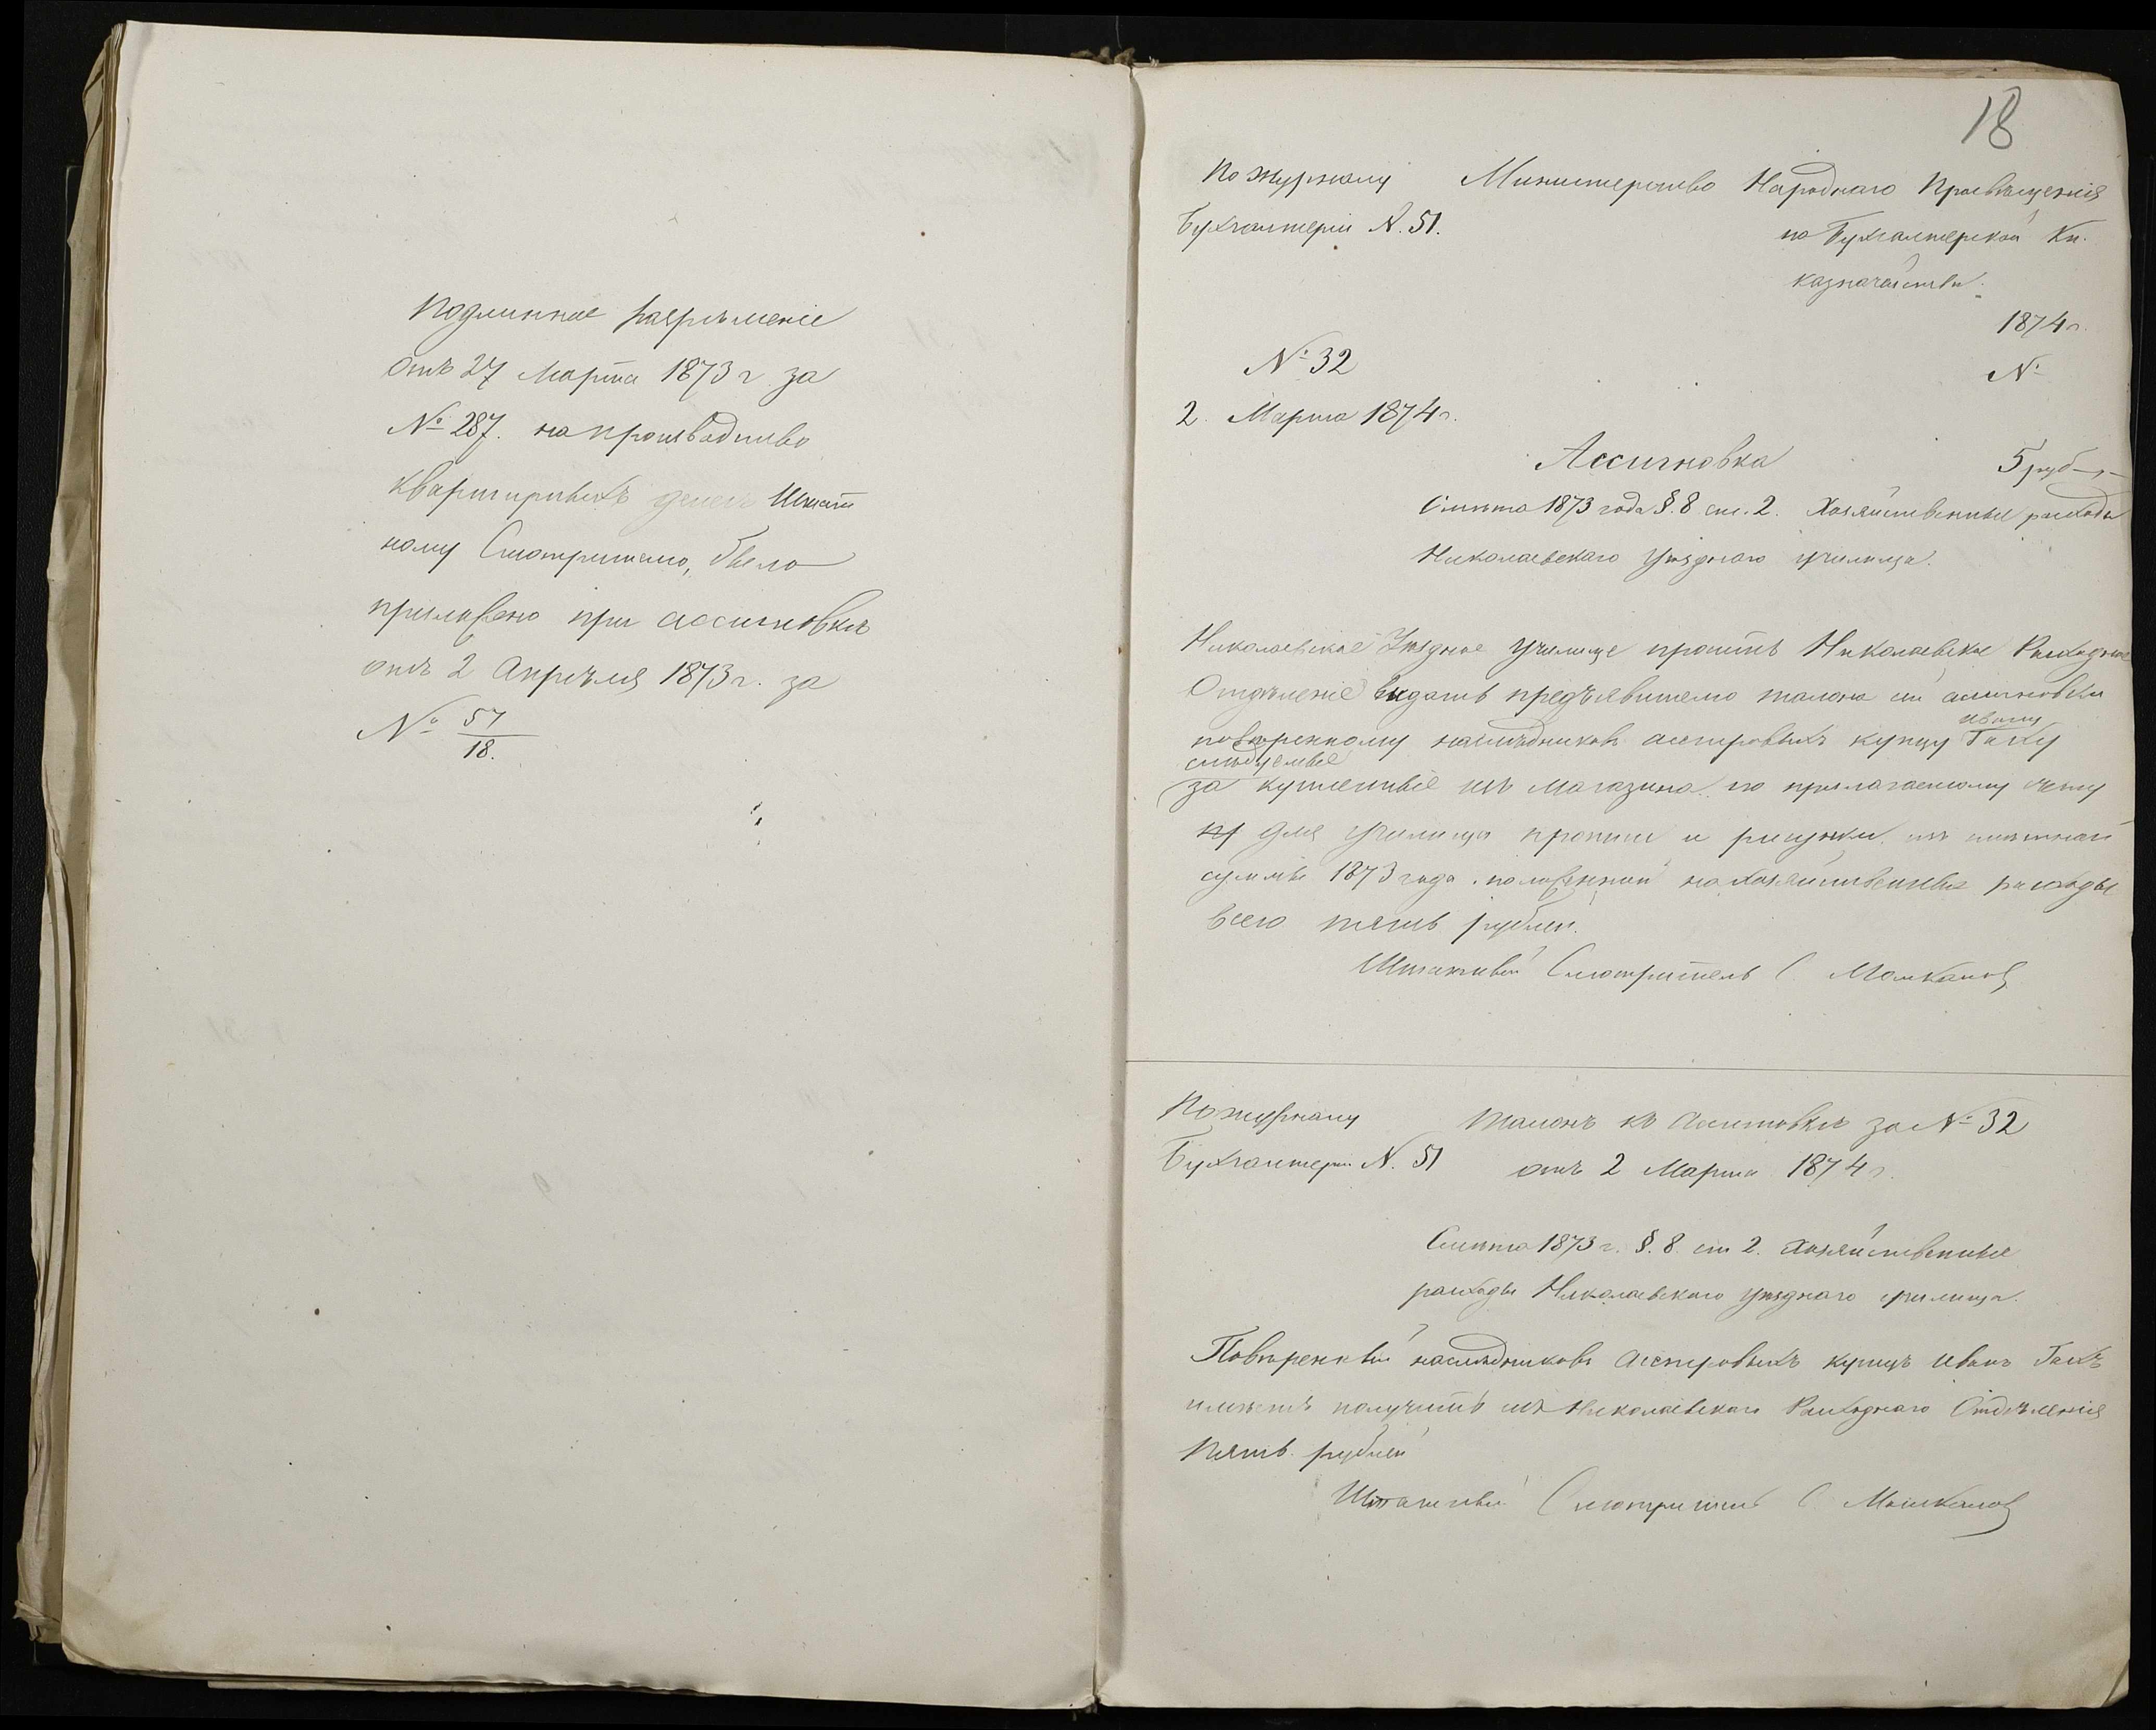 Подлинное разрѣшеніе
отъ 27 Марта 1873 г за
№ 287. на производство
квартирныхъ денегъ Штат
ному Смотрителю, было
приложено при ассигновкѣ
отъ 2 Апрѣля 1873 г. за
№ 57/18.
18
По журналу
Бухгалтеріи №. 51.
Министерство Народнаго Просвѣщенія
по Бухгалтерской Кн.
казначейства.
1874 г.
№
№ 32
2. Марта 1874 г.
Ассигновка 5 руб - -
Смѣта 1873 года §. 8 ст. 2. Хозяйственные расходы
Николаевскаго Уѣзднаго училища.
Николаевское Уѣздное училище проситъ Николаевское Расходное
Отдѣленіе выдать предъявителю талона сей ассигновки
повѣренному наслѣдниковъ купцу Ивану Гаку
слѣдуемые
за купленные изъ магазина по прилагаемому счету
для училища прописи и рисунки изъ смѣтной
суммы 1873 года положенной на хозяйственные расходы
всего пять рублей.
Штатный Смотритель С.
По журналу
Бухгалтеріи №. 51
Талонъ къ Ассигновкѣ за № 32
отъ 2 Марта 1874 г.
Смѣта 1873 г. §. 8. ст 2. Хозяйственные
расходы Николаевскаго уѣзднаго училища.
Повѣренный наслѣдниковъ купецъ Иванъ Гакъ
имѣетъ получить изъ Николаевскаго Расходнаго Отдѣленія
Пять рублей
Штатный Смотритель С.